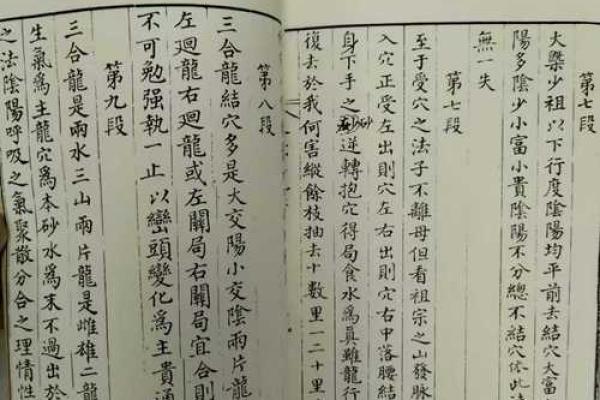 第七段
大槩少祖以下行度陰陽均平前去結穴大富
陽多陰少小富小貴陰陽不分總不結穴依此法
無一失
第七段
至于受穴之法子不離母但看祖宗之山發脉
入穴正受左出則穴左右出則穴右中落腰結
身下手之砂逆轉抱穴得局食水爲真雖龍行
復去於我何害縱餘枝抽去十數里一二十里
第八段
三合龍結穴多是大交陽小交陰兩片龍
左廻龍右廻龍或左關局右關局宜合則
不可勉强執一止以巒頭變化爲主貴通
第九段
三合龍是兩水三山兩片龍是雌雄二龍
生氣爲主龍穴爲本砂水爲末不過出於
之法陰陽呼吸之氣聚散分合之理情性